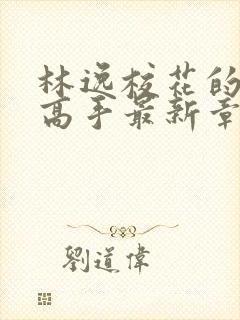 林逸校花的
高手最新章
劉道偉